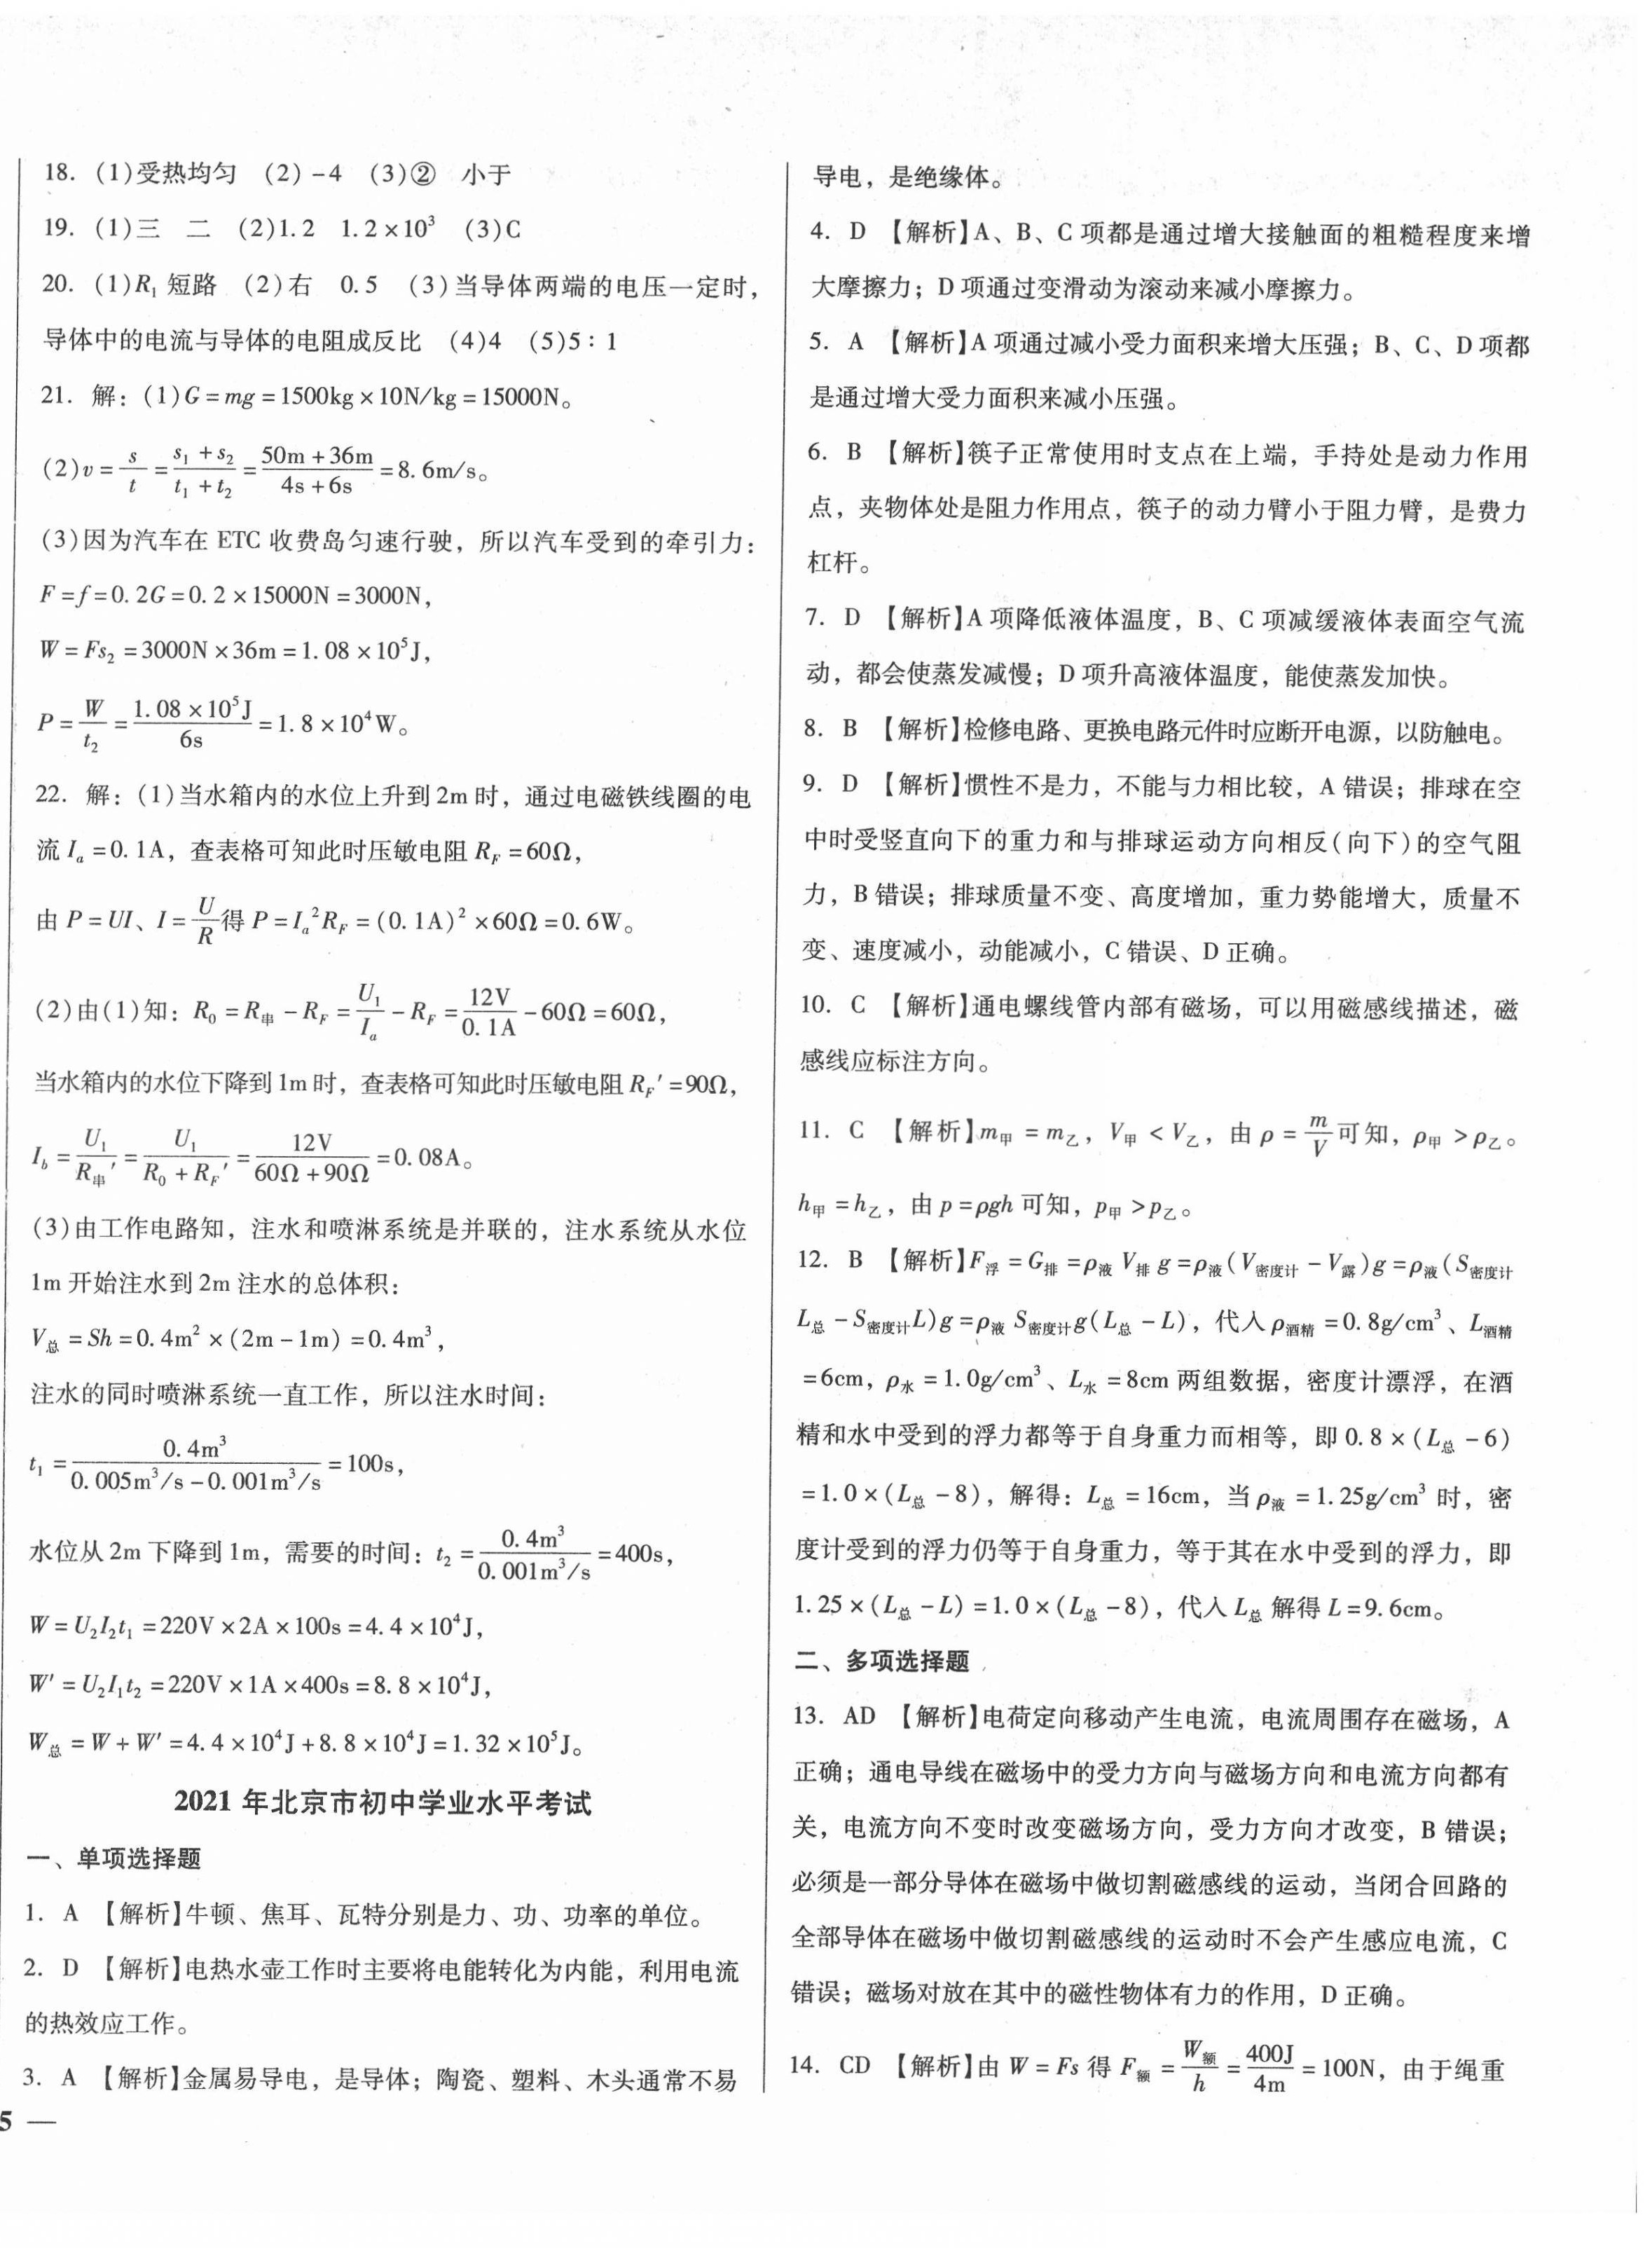 18. (1)受热均匀 (2)-4 (3)② 小于
19. (1)三 二 (2)1.2 1.2×10³ (3)C
20. (1)R₁ 短路 (2)右 0.5 (3)当导体两端的电压一定时，
导体中的电流与导体的电阻成反比 (4)4 (5)5∶1
21. 解：(1)G=mg=1500kg×10N/kg=15000N。
(2)v=s/t=(s₁+s₂)/(t₁+t₂)=(50m+36m)/(4s+6s)=8.6m/s。
(3)因为汽车在 ETC 收费岛匀速行驶，所以汽车受到的牵引力：
F=f=0.2G=0.2×15000N=3000N，
W=Fs₂=3000N×36m=1.08×10⁵J，
P=W/t₂=1.08×10⁵J/6s=1.8×10⁴W。
22. 解：(1)当水箱内的水位上升到 2m 时，通过电磁铁线圈的电
流 Iₐ=0.1A，查表格可知此时压敏电阻 R_F=60Ω，
由 P=UI、I=U/R得 P=Iₐ²R_F=(0.1A)²×60Ω=0.6W。
(2)由(1)知：R₀=R串-R_F=U₁/Iₐ-R_F=12V/0.1A-60Ω=60Ω，
当水箱内的水位下降到 1m 时，查表格可知此时压敏电阻 R_F′=90Ω，
I_b=U₁/R串′=U₁/(R₀+R_F′)=12V/(60Ω+90Ω)=0.08A。
(3)由工作电路知，注水和喷淋系统是并联的，注水系统从水位
1m 开始注水到 2m 注水的总体积：
V总=Sh=0.4m²×(2m-1m)=0.4m³，
注水的同时喷淋系统一直工作，所以注水时间：
t₁=0.4m³/(0.005m³/s-0.001m³/s)=100s，
水位从 2m 下降到 1m，需要的时间：t₂=0.4m³/(0.001m³/s)=400s，
W=U₂I₂t₁=220V×2A×100s=4.4×10⁴J，
W′=U₂I₁t₂=220V×1A×400s=8.8×10⁴J，
W总=W+W′=4.4×10⁴J+8.8×10⁴J=1.32×10⁵J。
2021 年北京市初中学业水平考试
一、单项选择题
1. A 【解析】牛顿、焦耳、瓦特分别是力、功、功率的单位。
2. D 【解析】电热水壶工作时主要将电能转化为内能，利用电流
的热效应工作。
3. A 【解析】金属易导电，是导体；陶瓷、塑料、木头通常不易
5 —
导电，是绝缘体。
4. D 【解析】A、B、C 项都是通过增大接触面的粗糙程度来增
大摩擦力；D 项通过变滑动为滚动来减小摩擦力。
5. A 【解析】A 项通过减小受力面积来增大压强；B、C、D 项都
是通过增大受力面积来减小压强。
6. B 【解析】筷子正常使用时支点在上端，手持处是动力作用
点，夹物体处是阻力作用点，筷子的动力臂小于阻力臂，是费力
杠杆。
7. D 【解析】A 项降低液体温度，B、C 项减缓液体表面空气流
动，都会使蒸发减慢；D 项升高液体温度，能使蒸发加快。
8. B 【解析】检修电路、更换电路元件时应断开电源，以防触电。
9. D 【解析】惯性不是力，不能与力相比较，A 错误；排球在空
中时受竖直向下的重力和与排球运动方向相反(向下)的空气阻
力，B 错误；排球质量不变、高度增加，重力势能增大，质量不
变、速度减小，动能减小，C 错误、D 正确。
10. C 【解析】通电螺线管内部有磁场，可以用磁感线描述，磁
感线应标注方向。
11. C 【解析】m甲=m乙，V甲<V乙，由 ρ=m/V可知，ρ甲>ρ乙。
h甲=h乙，由 p=ρgh 可知，p甲>p乙。
12. B 【解析】F浮=G排=ρ液V排g=ρ液(V密度计-V露)g=ρ液(S密度计
L总-S密度计L)g=ρ液S密度计g(L总-L)，代入 ρ酒精=0.8g/cm³、L酒精
=6cm，ρ水=1.0g/cm³、L水=8cm 两组数据，密度计漂浮，在酒
精和水中受到的浮力都等于自身重力而相等，即 0.8×(L总-6)
=1.0×(L总-8)，解得：L总=16cm，当 ρ液=1.25g/cm³ 时，密
度计受到的浮力仍等于自身重力，等于其在水中受到的浮力，即
1.25×(L总-L)=1.0×(L总-8)，代入 L总 解得 L=9.6cm。
二、多项选择题
13. AD 【解析】电荷定向移动产生电流，电流周围存在磁场，A
正确；通电导线在磁场中的受力方向与磁场方向和电流方向都有
关，电流方向不变时改变磁场方向，受力方向才改变，B 错误；
必须是一部分导体在磁场中做切割磁感线的运动，当闭合回路的
全部导体在磁场中做切割磁感线的运动时不会产生感应电流，C
错误；磁场对放在其中的磁性物体有力的作用，D 正确。
14. CD 【解析】由 W=Fs 得 F额=W额/h=400J/4m=100N，由于绳重